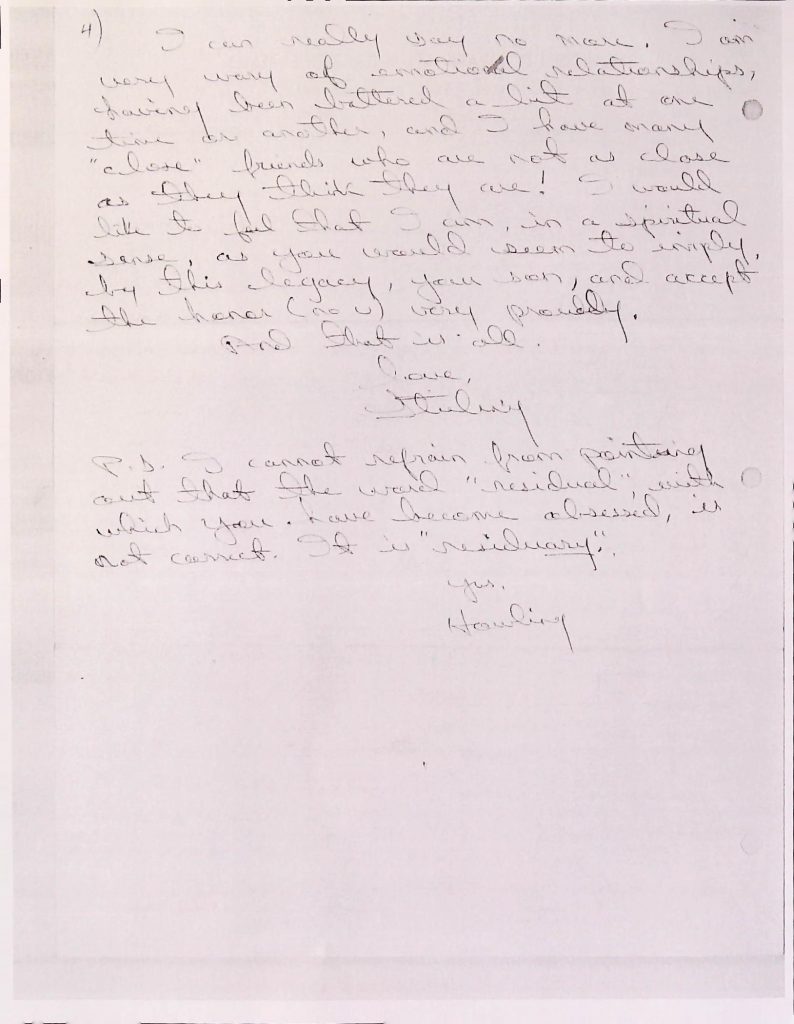 4)
I can really say no more. I am
very wary of emotional relationships,
having been battered a bit at one
time or another, and I have many
"close" friends who are not as close
as they think they are! I would
like to feel that I am, in a spiritual
sense, as you would seem to imply,
by this legacy, your son, and accept
the honor (no u) very proudly.
And that is all.
Love,
P.S. I cannot refrain from pointing
out that the word "residual", with
which you have become obsessed, is
not correct. It is "residuary".